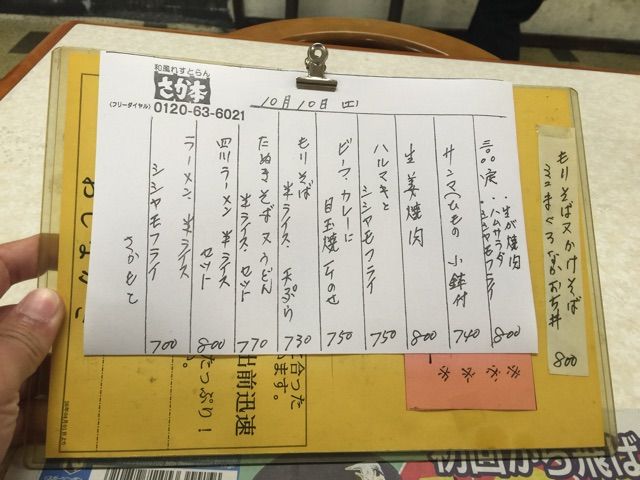 和風れすとらん
さか本
(フリーダイヤル) 0120-63-6021
10月10日(土)
・生が焼肉
・ハムサラダ
・シシャモフライ
800
サンマひもの 小鉢付
740
生姜焼肉
800
ハルマキと
シシャモフライ
750
ビーフ・カレーに
目玉焼1ケのせ
750
もりそば
半ライス・天ぷら
730
たぬきそば又うどん
半ライス・セット
770
四川ラーメン 半ライス
セット
800
ラーメン、半ライス
シシャモフライ
700
さかもと
もりそば又かけそば
ミニまぐろなかおち丼
800
合った
ます。
出前迅速
たっぷり!
初回から飛ば